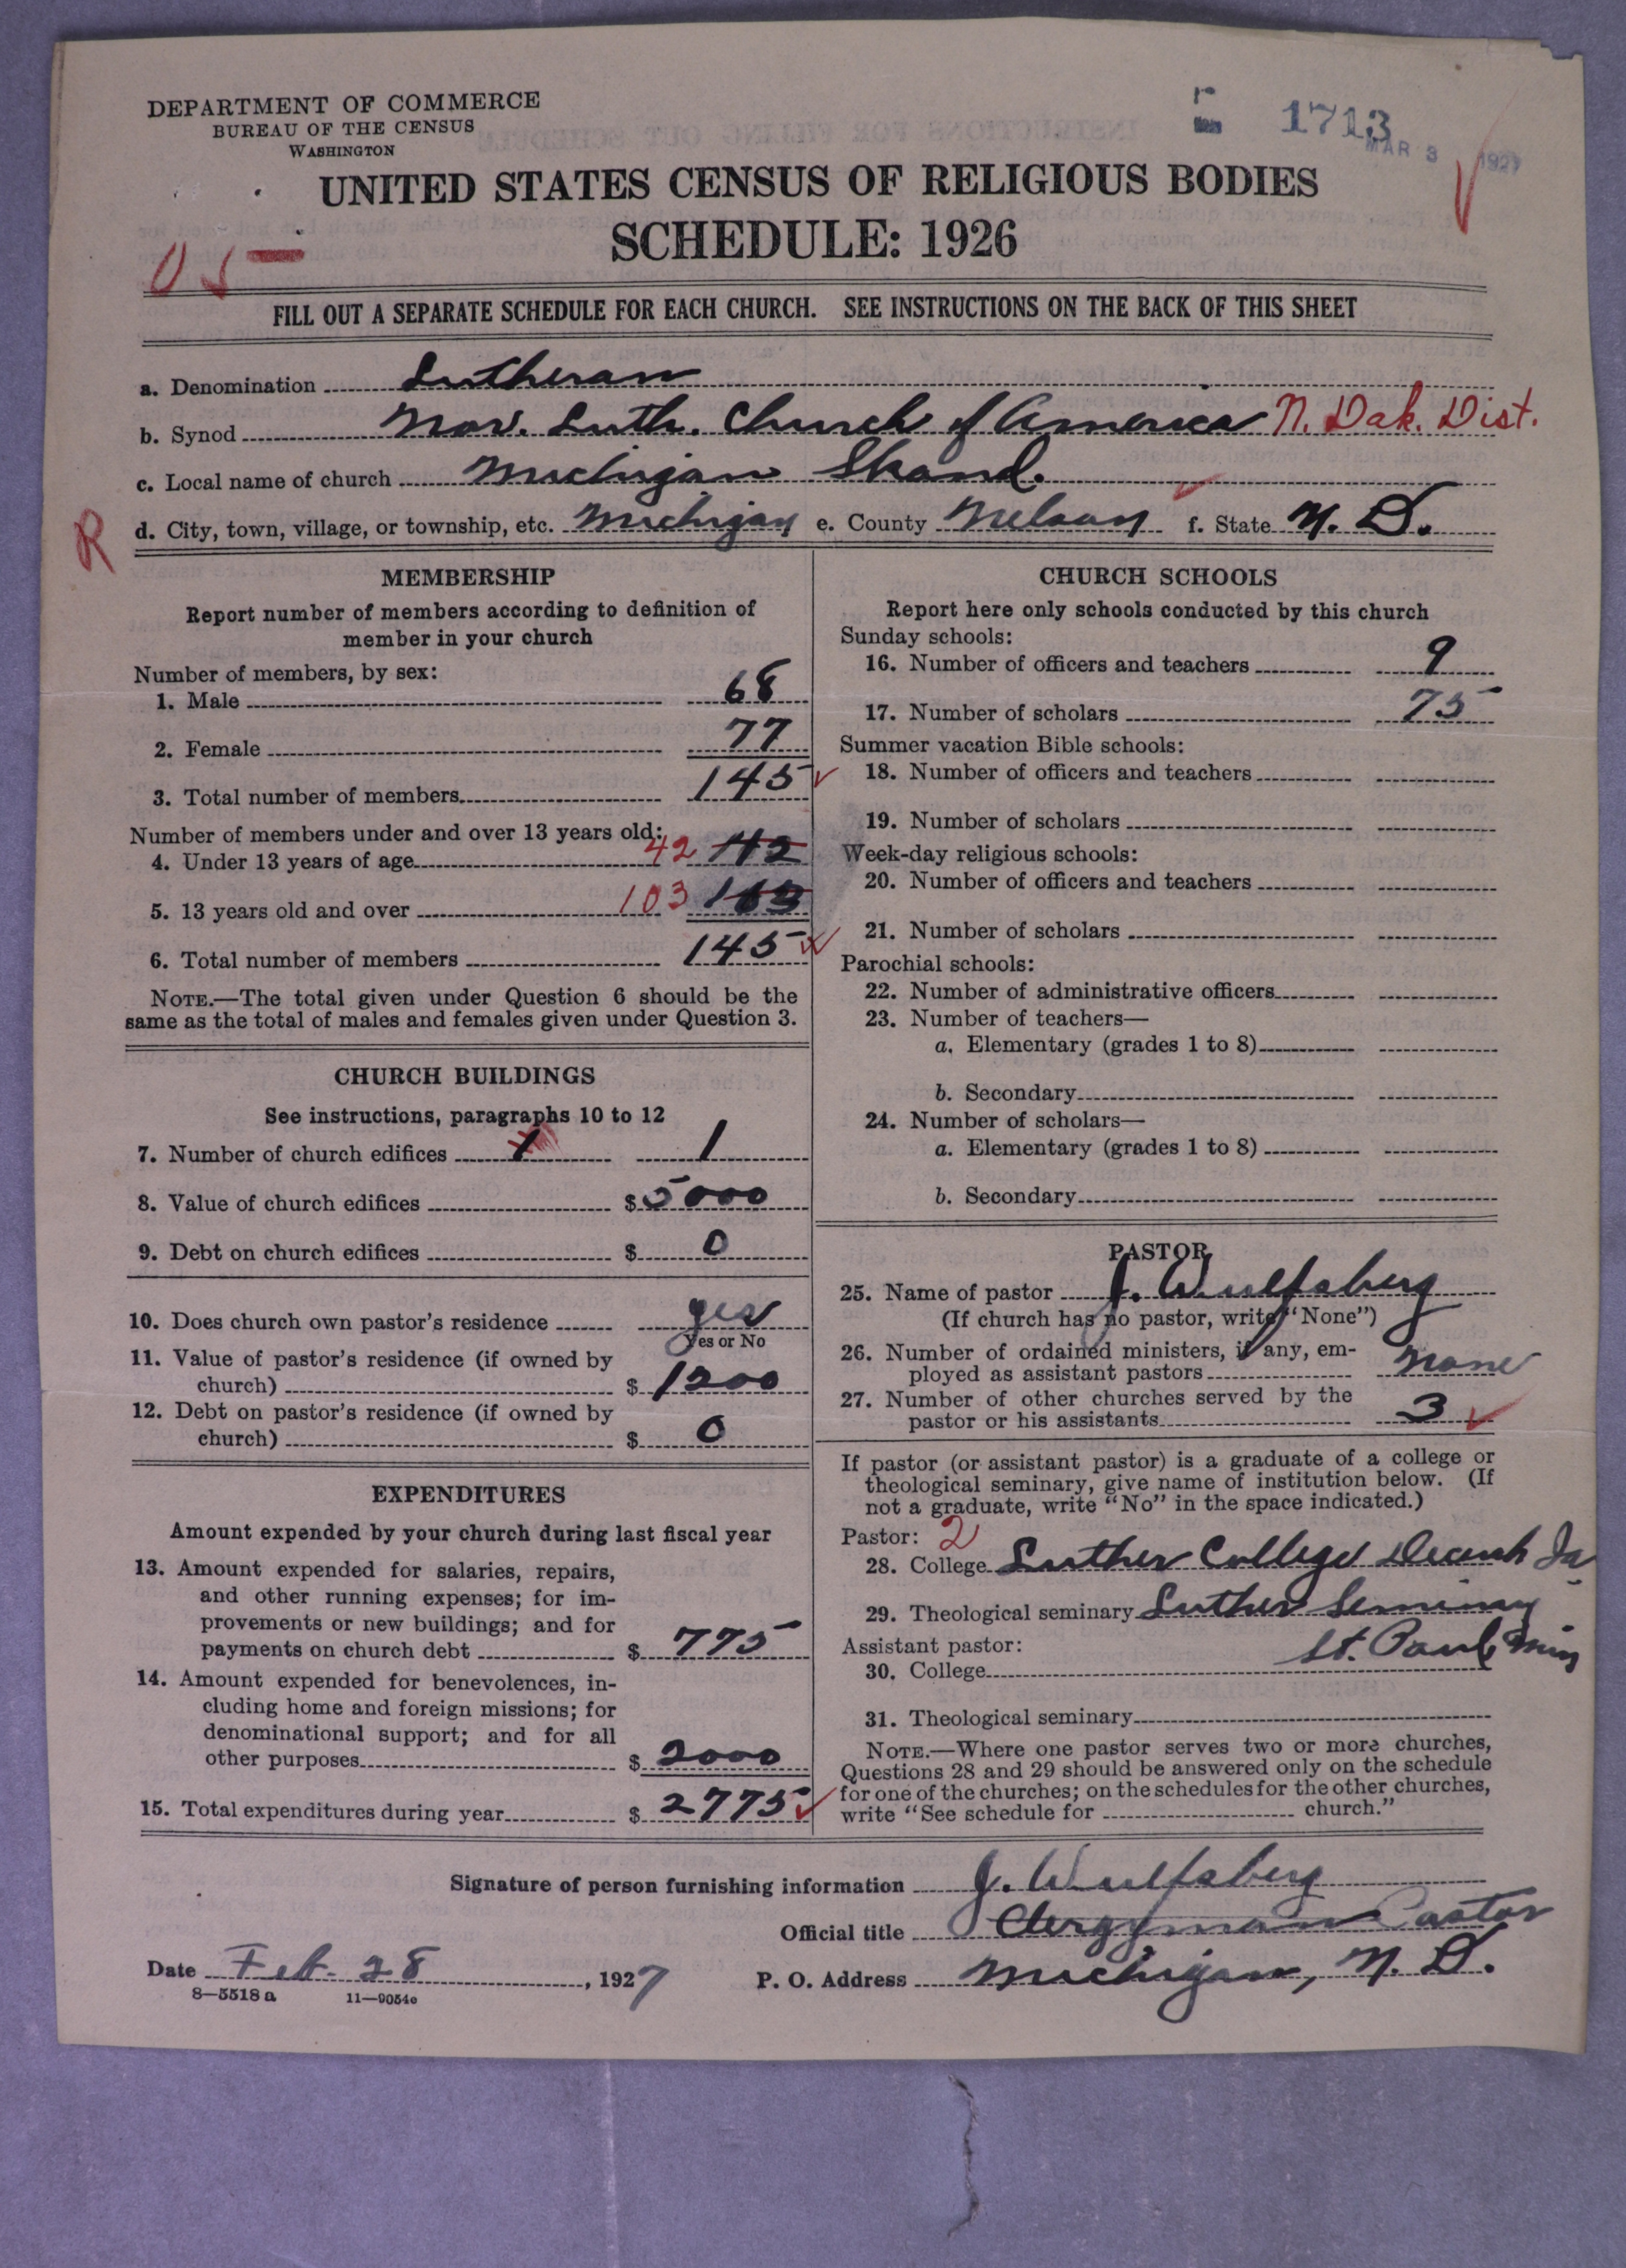 DEPARTMENT OF COMMERCE
BUREAU OF THE CENSUS
WASHINGTON
1713
MAR 3 1927
UNITED STATES CENSUS OF RELIGIOUS BODIES
SCHEDULE: 1926
FILL OUT A SEPARATE SCHEDULE FOR EACH CHURCH. SEE INSTRUCTIONS ON THE BACK OF THIS SHEET
a. Denomination Lutheran
b. Synod Nor. Luth. Church of America N. Dak. Dist.
c. Local name of church Michigan Skand.
R
d. City, town, village, or township, etc. Michigan e. County Nelson f. State N. D.
MEMBERSHIP
Report number of members according to definition of
member in your church
Number of members, by sex:
1. Male 68
2. Female 77
3. Total number of members 145
Number of members under and over 13 years old:
4. Under 13 years of age 42
5. 13 years old and over 103
6. Total number of members 145
NOTE.—The total given under Question 6 should be the
same as the total of males and females given under Question 3.
CHURCH BUILDINGS
See instructions, paragraphs 10 to 12
7. Number of church edifices 1 1
8. Value of church edifices $ 5000
9. Debt on church edifices $ 0
10. Does church own pastor's residence yes
Yes or No
11. Value of pastor's residence (if owned by
church) $ 1200
12. Debt on pastor's residence (if owned by
church) $ 0
EXPENDITURES
Amount expended by your church during last fiscal year
13. Amount expended for salaries, repairs,
and other running expenses; for im-
provements or new buildings; and for
payments on church debt $ 775
14. Amount expended for benevolences, in-
cluding home and foreign missions; for
denominational support; and for all
other purposes $ 2000
15. Total expenditures during year $ 2775
CHURCH SCHOOLS
Report here only schools conducted by this church
Sunday schools:
16. Number of officers and teachers 9
17. Number of scholars 75
Summer vacation Bible schools:
18. Number of officers and teachers
19. Number of scholars
Week-day religious schools:
20. Number of officers and teachers
21. Number of scholars
Parochial schools:
22. Number of administrative officers
23. Number of teachers—
a. Elementary (grades 1 to 8)
b. Secondary
24. Number of scholars—
a. Elementary (grades 1 to 8)
b. Secondary
PASTOR
25. Name of pastor J. Wulfsberg
(If church has no pastor, write "None")
26. Number of ordained ministers, if any, em-
ployed as assistant pastors None
27. Number of other churches served by the
pastor or his assistants 3
If pastor (or assistant pastor) is a graduate of a college or
theological seminary, give name of institution below. (If
not a graduate, write "No" in the space indicated.)
Pastor: 2
28. College Luther College Decorah Ia
29. Theological seminary Luther Seminary
Assistant pastor: St. Paul Min
30. College
31. Theological seminary
NOTE.—Where one pastor serves two or more churches,
Questions 28 and 29 should be answered only on the schedule
for one of the churches; on the schedules for the other churches,
write "See schedule for church."
Signature of person furnishing information J. Wulfsberg
Official title Clergyman Pastor
Date Feb. 28, 1927 P. O. Address Michigan, N. D.
8—5518 a 11—9054c